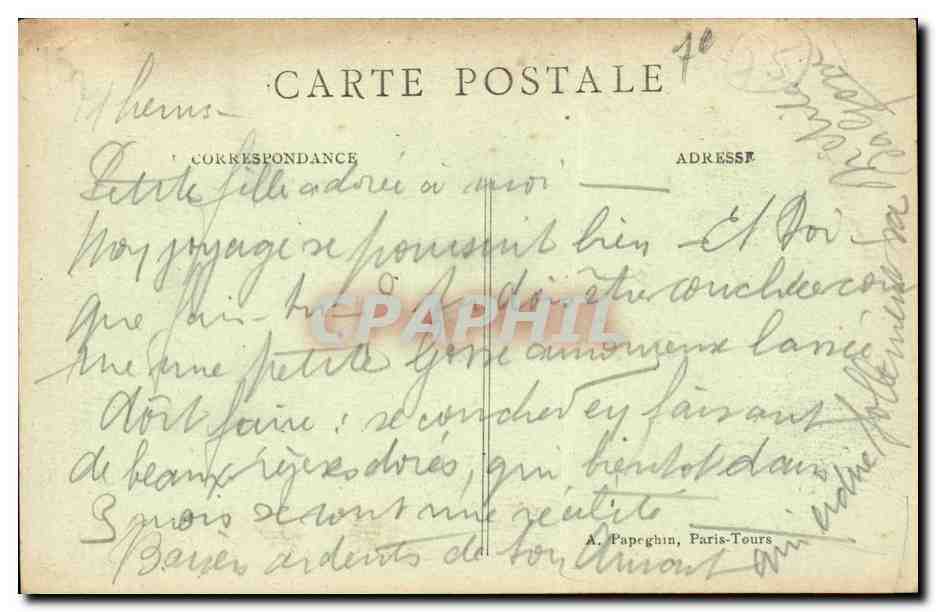 7e
CARTE POSTALE
CORRESPONDANCE
ADRESSE
Petite fille adorée à moi
Mon voyage se poursuit bien - Et Toi
que fais-tu - Tu dois être couchée com
me une petite gosse amoureuse lassée
doit faire : se coucher en faisant
de beaux rêves dorés, qui bientot dans
3 mois seront une réalité
Baisers ardents de ton Amant
qui adore follement sa
CPAPHIL
A. Papeghin, Paris-Tours